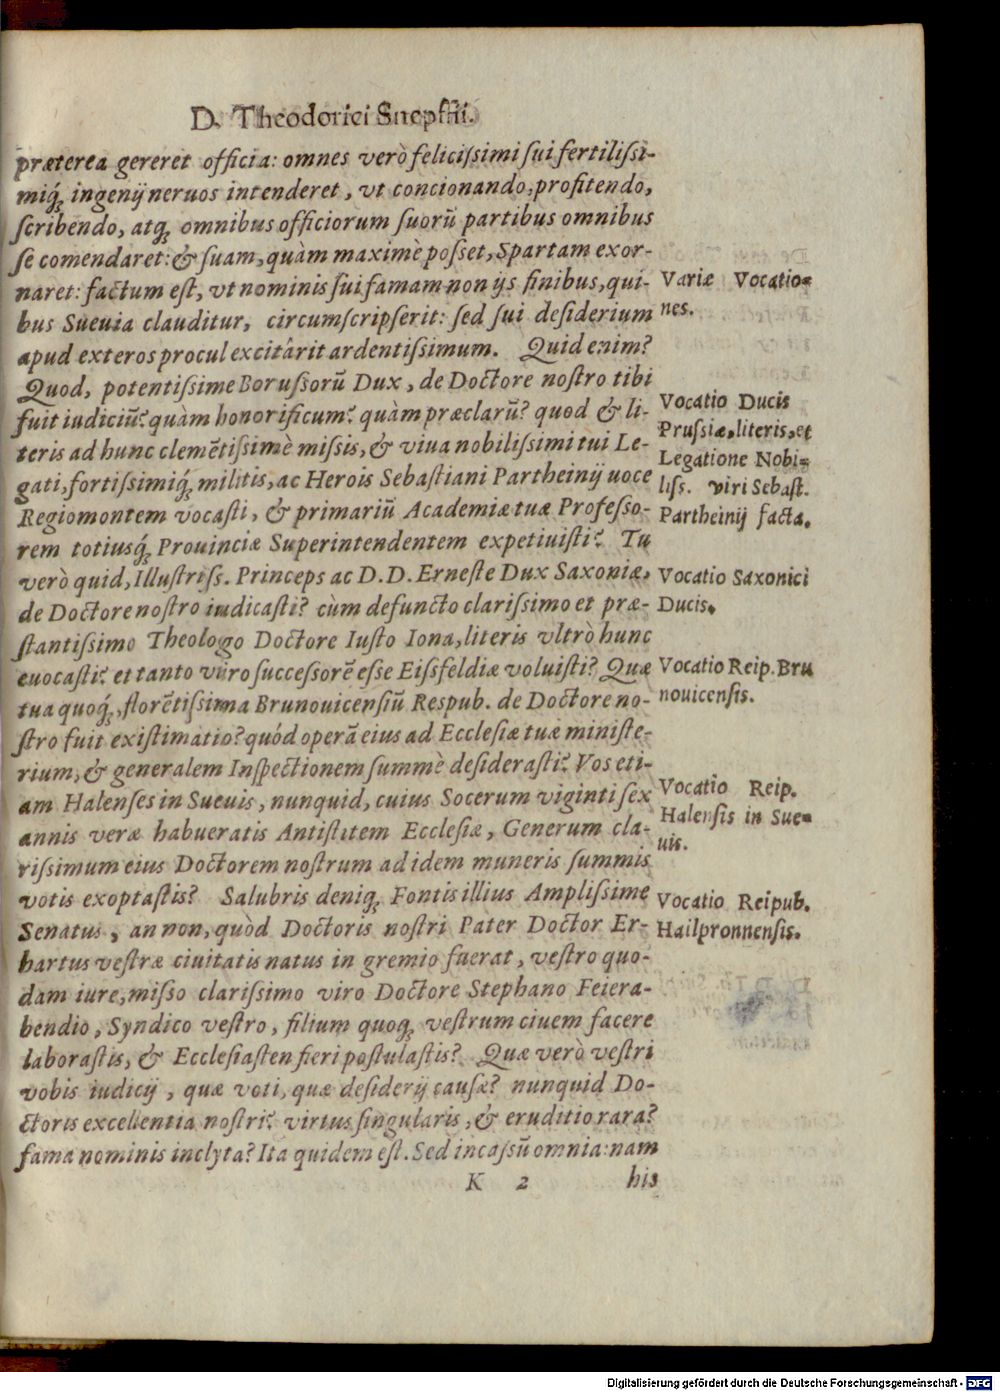 D. Theodorici Snepffii.
præterea gereret officia: omnes verò feliciſſimi ſui fertiliſſi-
miq́; ingenij neruos intenderet, vt concionando, profitendo,
ſcribendo, atq; omnibus officiorum ſuorũ partibus omnibus
ſe comendaret: & ſuam, quàm maximè poſſet, Spartam exor-
naret: factum eſt, vt nominis ſui famam non ijs finibus, qui-
bus Sueuia clauditur, circumſcripſerit: ſed ſui deſiderium
apud exteros procul excitârit ardentiſſimum. Quid enim?
Quod, potentiſſime Boruſſorũ Dux, de Doctore noſtro tibi
fuit iudiciũ? quàm honorificum? quàm præclarũ? quod & li-
teris ad hunc clemẽtiſſimè miſſis, & viua nobiliſſimi tui Le-
gati, fortiſſimiq́; militis, ac Herois Sebaſtiani Partheinij uoce
Regiomontem vocaſti, & primariũ Academiæ tuæ Profeſſo-
rem totiusq́; Prouinciæ Superintendentem expetiuiſti? Tu
verò quid, Illuſtriſſ. Princeps ac D.D. Erneſte Dux Saxoniæ,
de Doctore noſtro iudicaſti? cùm defuncto clariſſimo et præ-
ſtantiſſimo Theologo Doctore Iuſto Iona, literis vltrò hunc
euocaſti? et tanto viro ſucceſſorẽ eſſe Eiſsfeldiæ voluiſti? Quæ
tua quoq́;, florẽtiſſima Brunouicenſiũ Respub. de Doctore no-
ſtro fuit exiſtimatio? quód operã eius ad Eccleſiæ tuæ miniſte-
rium, & generalem Inſpectionem ſummè deſideraſti? Vos eti-
am Halenſes in Sueuis, nunquid, cuius Socerum viginti ſex
annis veræ habueratis Antiſtitem Eccleſiæ, Generum cla-
riſſimum eius Doctorem noſtrum ad idem muneris ſummis
votis exoptaſtis? Salubris deniq; Fontis illius Ampliſſime
Senatus, an non, quòd Doctoris noſtri Pater Doctor Er-
hartus veſtræ ciuitatis natus in gremio fuerat, veſtro quo-
dam iure, miſſo clariſſimo viro Doctore Stephano Feiera-
bendio, Syndico veſtro, filium quoq; veſtrum ciuem facere
laboraſtis, & Eccleſiaſten fieri poſtulaſtis? Quæ verò veſtri
vobis iudicij, quæ voti, quæ deſiderij cauſæ? nunquid Do-
ctoris excellentia noſtri? virtus ſingularis, & eruditio rara?
fama nominis inclyta? Ita quidem eſt. Sed incaſsũ omnia: nam
K 2 his
Variæ Vocatio-
nes.
Vocatio Ducis
Pruſſiæ, literis, et
Legatione Nobi-
liſſ. viri Sebaſt.
Partheinij facta.
Vocatio Saxonici
Ducis.
Vocatio Reip. Bru
nouicenſis.
Vocatio Reip.
Halenſis in Sue-
uis.
Vocatio Reipub.
Hailpronnenſis.
Digitalisierung gefördert durch die Deutsche Forschungsgemeinschaft - DFG